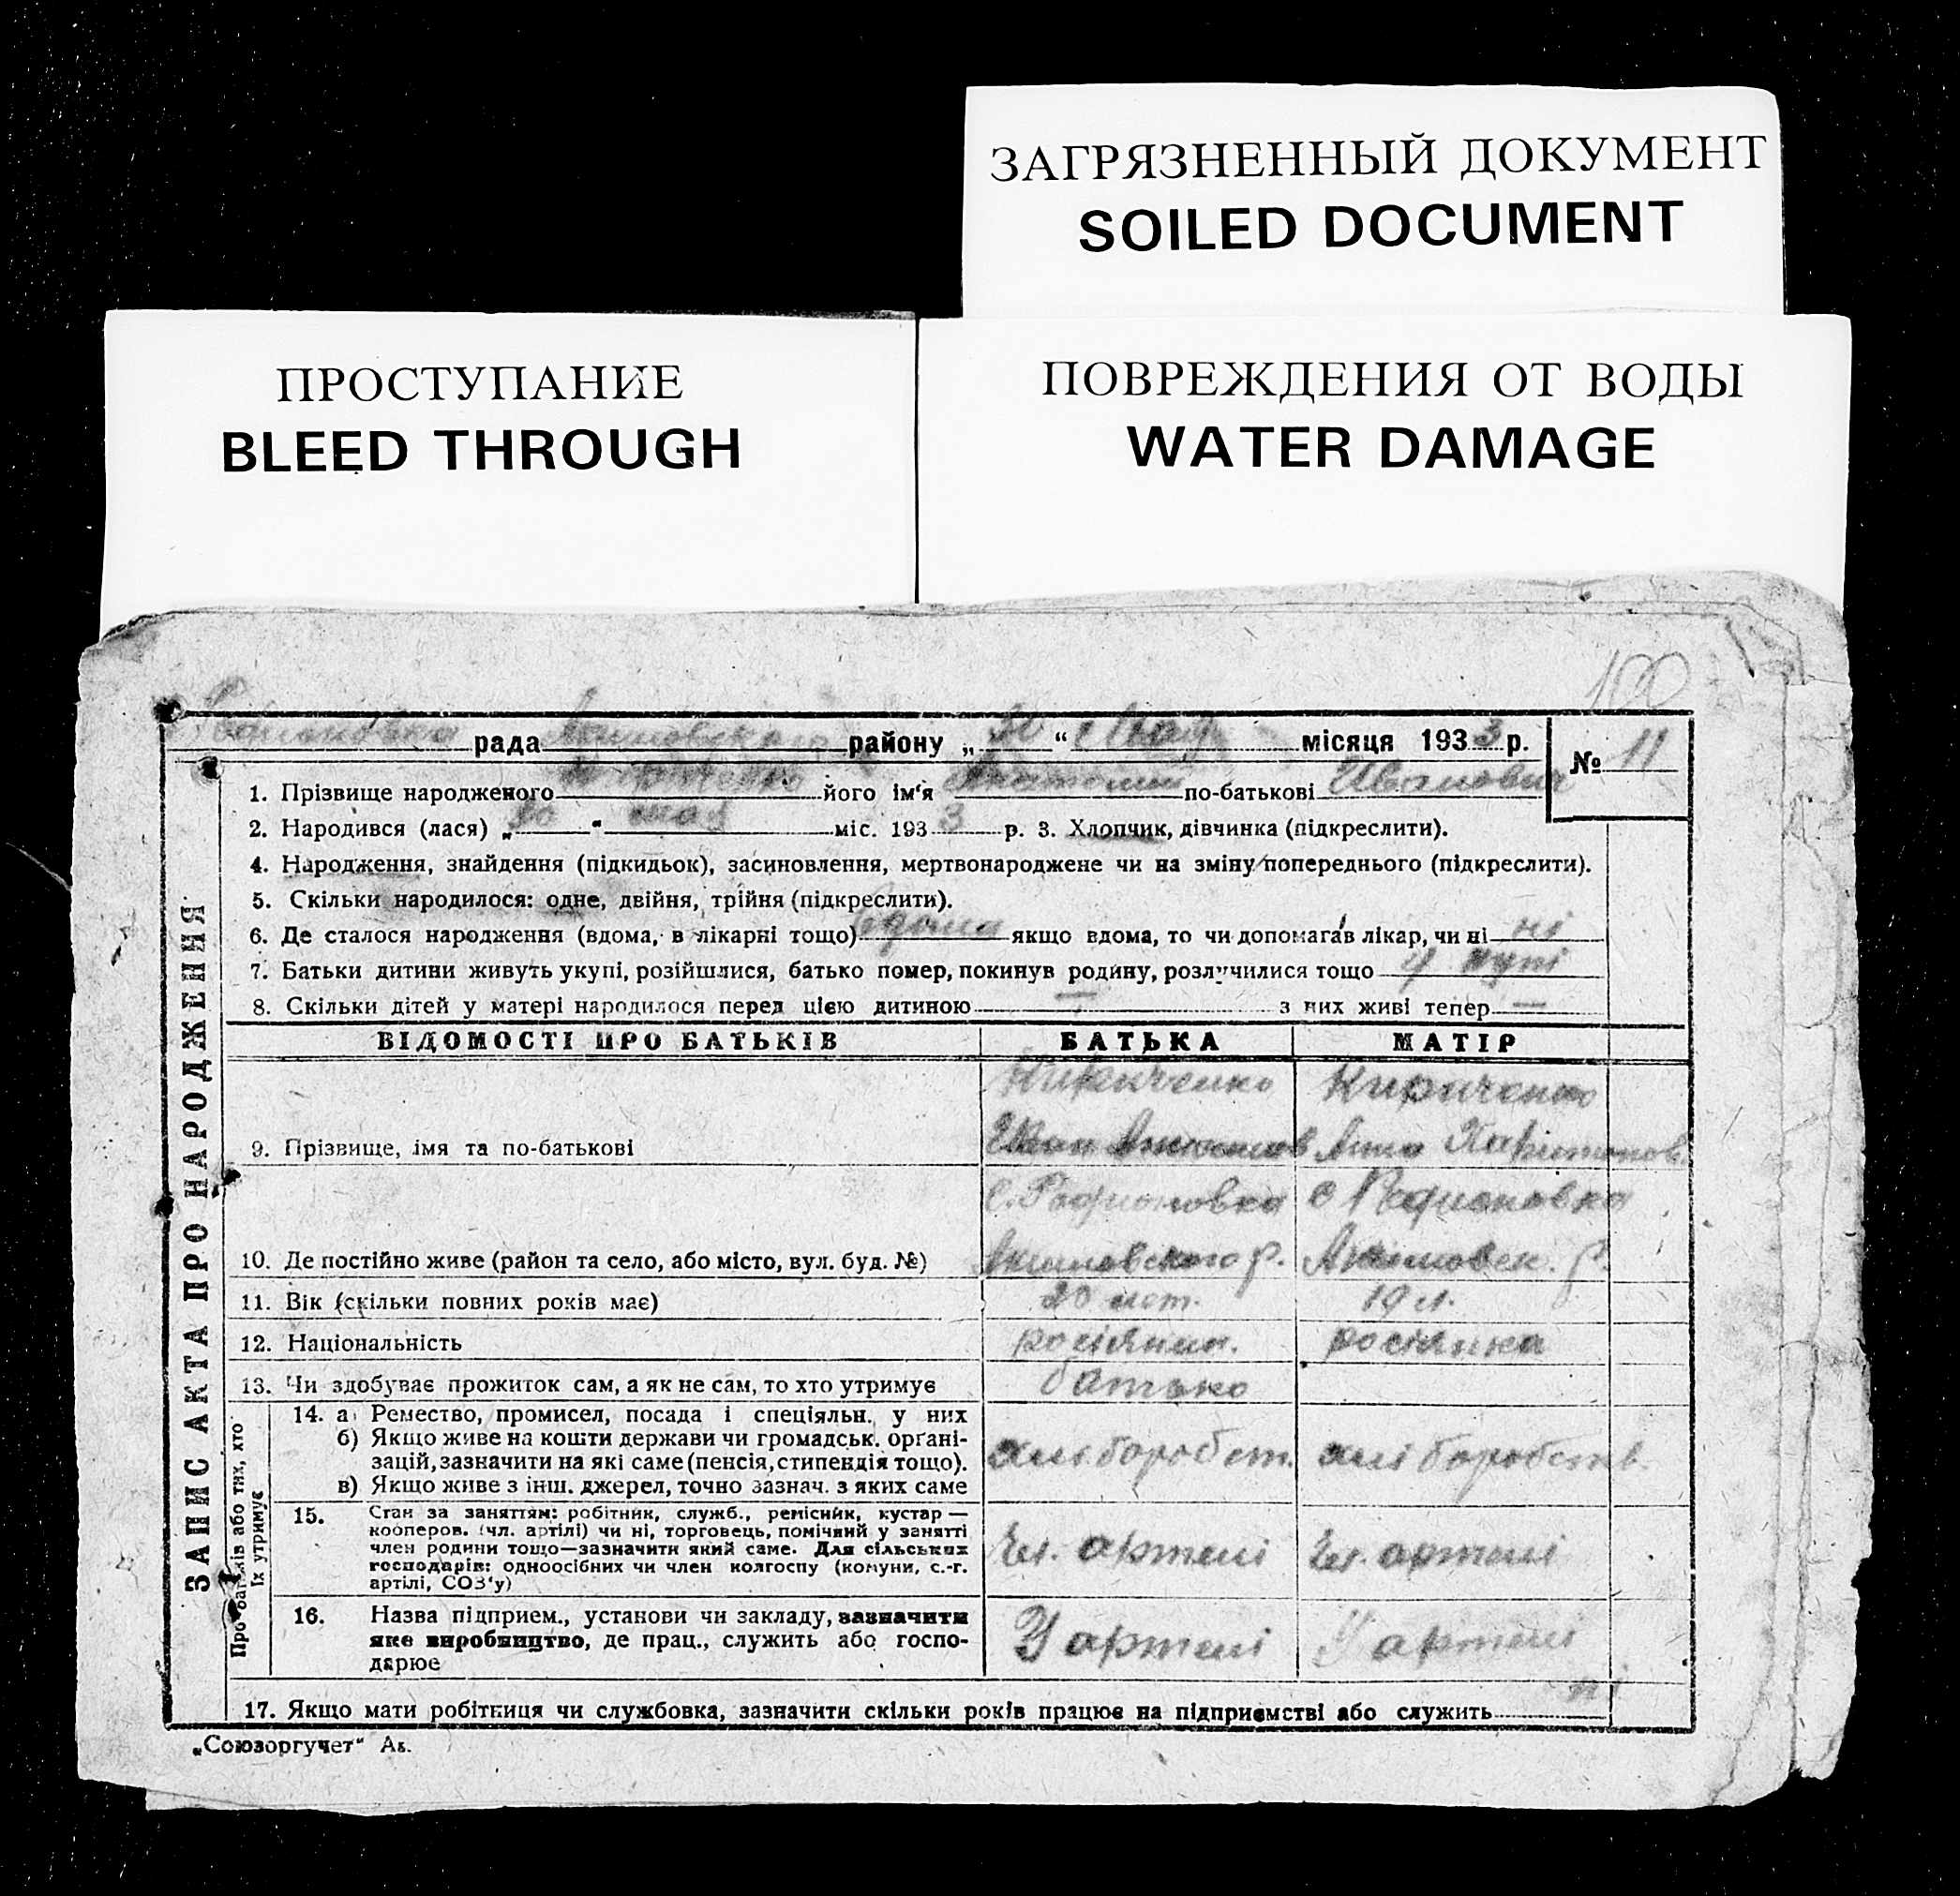 ЗАГРЯЗНЕННЫЙ ДОКУМЕНТ
SOILED DOCUMENT
ПРОСТУПАНИЕ
BLEED THROUGH
ПОВРЕЖДЕНИЯ ОТ ВОДЫ
WATER DAMAGE
100
рада району „ 30 “ мая місяця 1933 р.
№ 11
1. Прізвище народженого його ім'я Анатолий по-батькові Иванович
2. Народився (лася) „ “ мая міс. 1933 р. 3. Хлопчик, дівчинка (підкреслити).
4. Народження, знайдення (підкидьок), засиновлення, мертвонароджене чи на зміну попереднього (підкреслити).
5. Скільки народилося: одне, двійня, трійня (підкреслити).
6. Де сталося народження (вдома, в лікарні тощо) вдома якщо вдома, то чи допомагав лікар, чи ні ні
7. Батьки дитини живуть укупі, розійшлися, батько помер, покинув родину, розлучилися тощо У купі
8. Скільки дітей у матері народилося перед цією дитиною — з них живі тепер —
ЗАПИС АКТА ПРО НАРОДЖЕННЯ
ВІДОМОСТІ ПРО БАТЬКІВ БАТЬКА МАТІР
Кириченко Кириченко
9. Прізвище, імя та по-батькові Иван Анна Харитонов
с. Родионовка с Родионовка
10. Де постійно живе (район та село, або місто, вул. буд. №) Акимовского р. Акимовск. р.
11. Вік (скільки повних років має) 20 лет. 19 л.
12. Національність росіянин. росіянка
13. Чи здобуває прожиток сам, а як не сам, то хто утримує батько
Про батьків або тих, хто їх утримує
14. а) Ремество, промисел, посада і спеціяльн. у них
б) Якщо живе на кошти держави чи громадськ. органі-
зацій, зазначити на які саме (пенсія, стипендія тощо). хліборобст. хліборобств.
в) Якщо живе з інш. джерел, точно зазнач. з яких саме
15. Стан за заняттям: робітник, служб., ремісник, кустар —
кооперов. (чл. артілі) чи ні, торговець, помічний у занятті
член родини тощо—зазначити який саме. Для сільських
господарів: одноосібних чи член колгоспу (комуни, с.-г.
артілі, СОЗ'у)
Чл. артелі Чл. артелі
16. Назва підприєм., установи чи закладу, зазначити
яке виробництво, де прац., служить або госпо-
дарює
У артелі У артелі
17. Якщо мати робітниця чи службовка, зазначити скільки років працює на підприємстві або служить ні
„Союзоргучет“